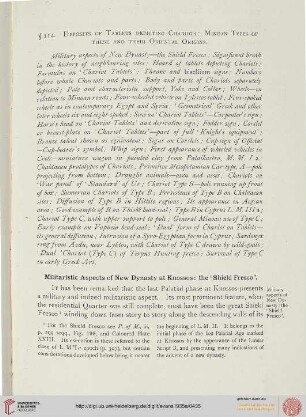 § 114. Deposits of Tablets depicting Chariots; Minoan Types of
these and their Oriental Origins.
Military aspects of New Dynasty—the Shield Fresco; Significant break
in the history of neighbouring sites; Hoard of tablets depicting Chariots;
Formulas on 'Chariot Tablets'; Throne and
before whole Chariots and parts; Body and parts of Chariots separately
depicted; Pole and characteristic support, Yoke and Collar; Wheels—in
relation to Minoan roads; Four-spoked wheels on Tylissos tablet; Four-spoked
wheels as in contemporary Egypt and Syria; 'Geometrical' Greek and other
later wheels six and eight spoked; Sign on 'Chariot Tablets'—Carpenter's sign;
Horse's head on 'Chariot Tablets' and derivative sign; Fodder sign; Corslet
or breast-plate on 'Chariot Tablets'—part of full 'Knight's equipment';
Bronze talent shown as equivalent; Signs on Corslets; Cuirass of Officer
—Cup-bearer's symbol; Whip sign; First appearance of wheeled vehicles in
Crete—miniature waggon in painted clay from Palaikastro, M. M. I a;
Chaldaean prototypes of Chariots; Primitive Mesopotamian Car type A—pole
projecting from bottom; Draught animals—ass and oxen; Chariots on
of Ur; Chariot Type B—pole running up front
of box; Sumerian Chariots of Type B; Persistence of Type B on Chaldaean
sites; Diffusion of Type B in Hittite regions; Its appearance in Aegean
area; Good example of B on Thisbê bead-seal; Type B in Cyprus L. M. III a;
Chariot Type C, with upper support to pole; General Minoan use of Type C;
Early example on Vapheio bead-seal; 'Dual' form of Chariot on Tablets—
its general diffusion; Intrusion of a Syro-Egyptian form in Cyprus; Sardonyx
ring from Aidin, near Lydia, with Chariot of Type C drawn by wild-goats;
'Dual' Chariot (Type C) of Tiryns Hunting fresco; Survival of Type C
in early Greek Art.
Militaristic Aspects of New Dynasty at Knossos: the 'Shield Fresco'.
It has been remarked that the last Palatial phase at Knossos presents
a military and indeed militaristic aspect. Its most prominent feature, when
the residential Quarter was still complete, must have been the great Shield
Fresco¹ winding down from story to story along the descending walls of its
Military
aspects of
New Dynasty:
the
'Shield
Fresco'.
¹ For the Shield Frescoes see P. of M., iii,
Fig. 196, and Coloured Plate
XXIII. Its execution is there referred to the
close of L. M. I
considerations developed below bring it nearer
the beginning of L. M. II. It belongs to the
initial phase of the last Palatial Age marked
at Knossos by the appearance of the Linear
Script B, and presenting many indications of
the advent of a new dynasty.
http://digi.ub.uni-heidelberg.de/diglit/evans1935a/0435